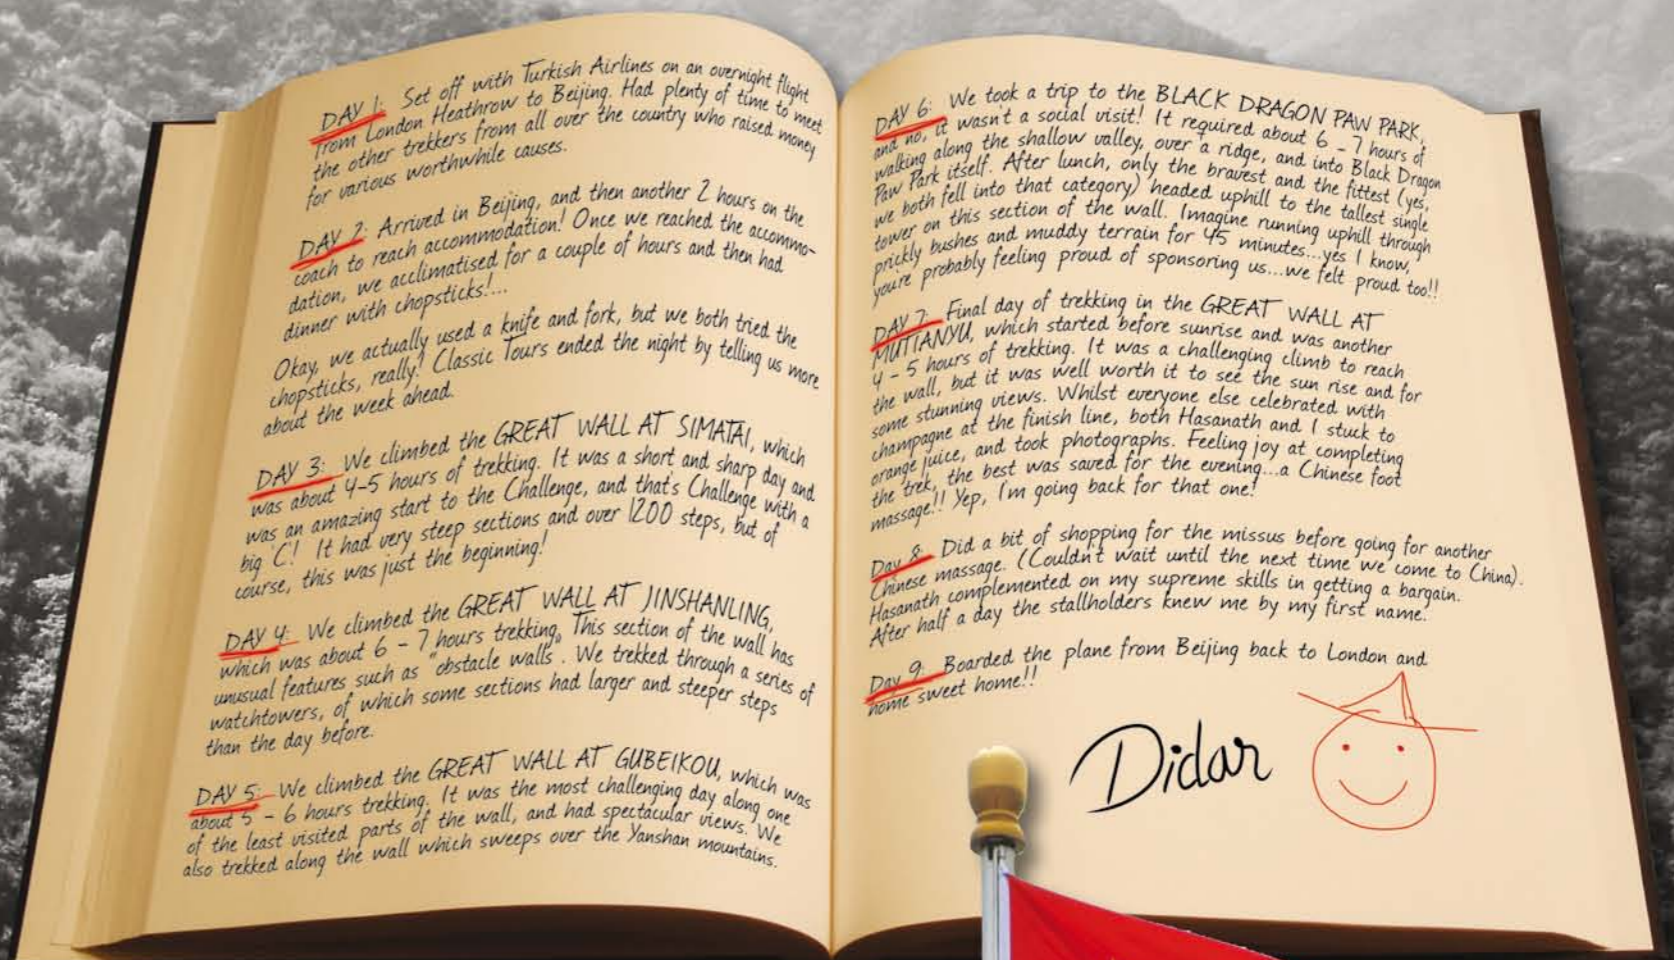 DAY 1: Set off with Turkish Airlines on an overnight flight
from London Heathrow to Beijing. Had plenty of time to meet
the other trekkers from all over the country who raised money
for various worthwhile causes.
DAY 2: Arrived in Beijing, and then another 2 hours on the
coach to reach accommodation! Once we reached the accommo-
dation, we acclimatised for a couple of hours and then had
dinner with chopsticks!...
Okay, we actually used a knife and fork, but we both tried the
chopsticks, really! Classic Tours ended the night by telling us more
about the week ahead.
DAY 3: We climbed the GREAT WALL AT SIMATAI, which
was about 4-5 hours of trekking. It was a short and sharp day and
was an amazing start to the Challenge, and that's Challenge with a
big 'C'! It had very steep sections and over 1200 steps, but of
course, this was just the beginning!
DAY 4: We climbed the GREAT WALL AT JINSHANLING,
which was about 6 - 7 hours trekking. This section of the wall has
unusual features such as "obstacle walls". We trekked through a series of
watchtowers, of which some sections had larger and steeper steps
than the day before.
DAY 5: We climbed the GREAT WALL AT GUBEIKOU, which was
about 5 - 6 hours trekking. It was the most challenging day along one
of the least visited parts of the wall, and had spectacular views. We
also trekked along the wall which sweeps over the Yanshan mountains.
DAY 6: We took a trip to the BLACK DRAGON PAW PARK,
and no, it wasn't a social visit! It required about 6 - 7 hours of
walking along the shallow valley, over a ridge, and into Black Dragon
Paw Park itself. After lunch, only the bravest and the fittest (yes,
we both fell into that category) headed uphill to the tallest single
tower on this section of the wall. Imagine running uphill through
prickly bushes and muddy terrain for 45 minutes...yes I know,
you're probably feeling proud of sponsoring us...we felt proud too!!
DAY 7: Final day of trekking in the GREAT WALL AT
MUTIANYU, which started before sunrise and was another
4 - 5 hours of trekking. It was a challenging climb to reach
the wall, but it was well worth it to see the sun rise and for
some stunning views. Whilst everyone else celebrated with
champagne at the finish line, both Hasanath and I stuck to
orange juice, and took photographs. Feeling joy at completing
the trek, the best was saved for the evening...a Chinese foot
massage!! Yep, I'm going back for that one!
Day 8: Did a bit of shopping for the missus before going for another
Chinese massage. (Couldn't wait until the next time we come to China).
Hasanath complemented on my supreme skills in getting a bargain.
After half a day the stallholders knew me by my first name.
Day 9: Boarded the plane from Beijing back to London and
home sweet home!!
Didar